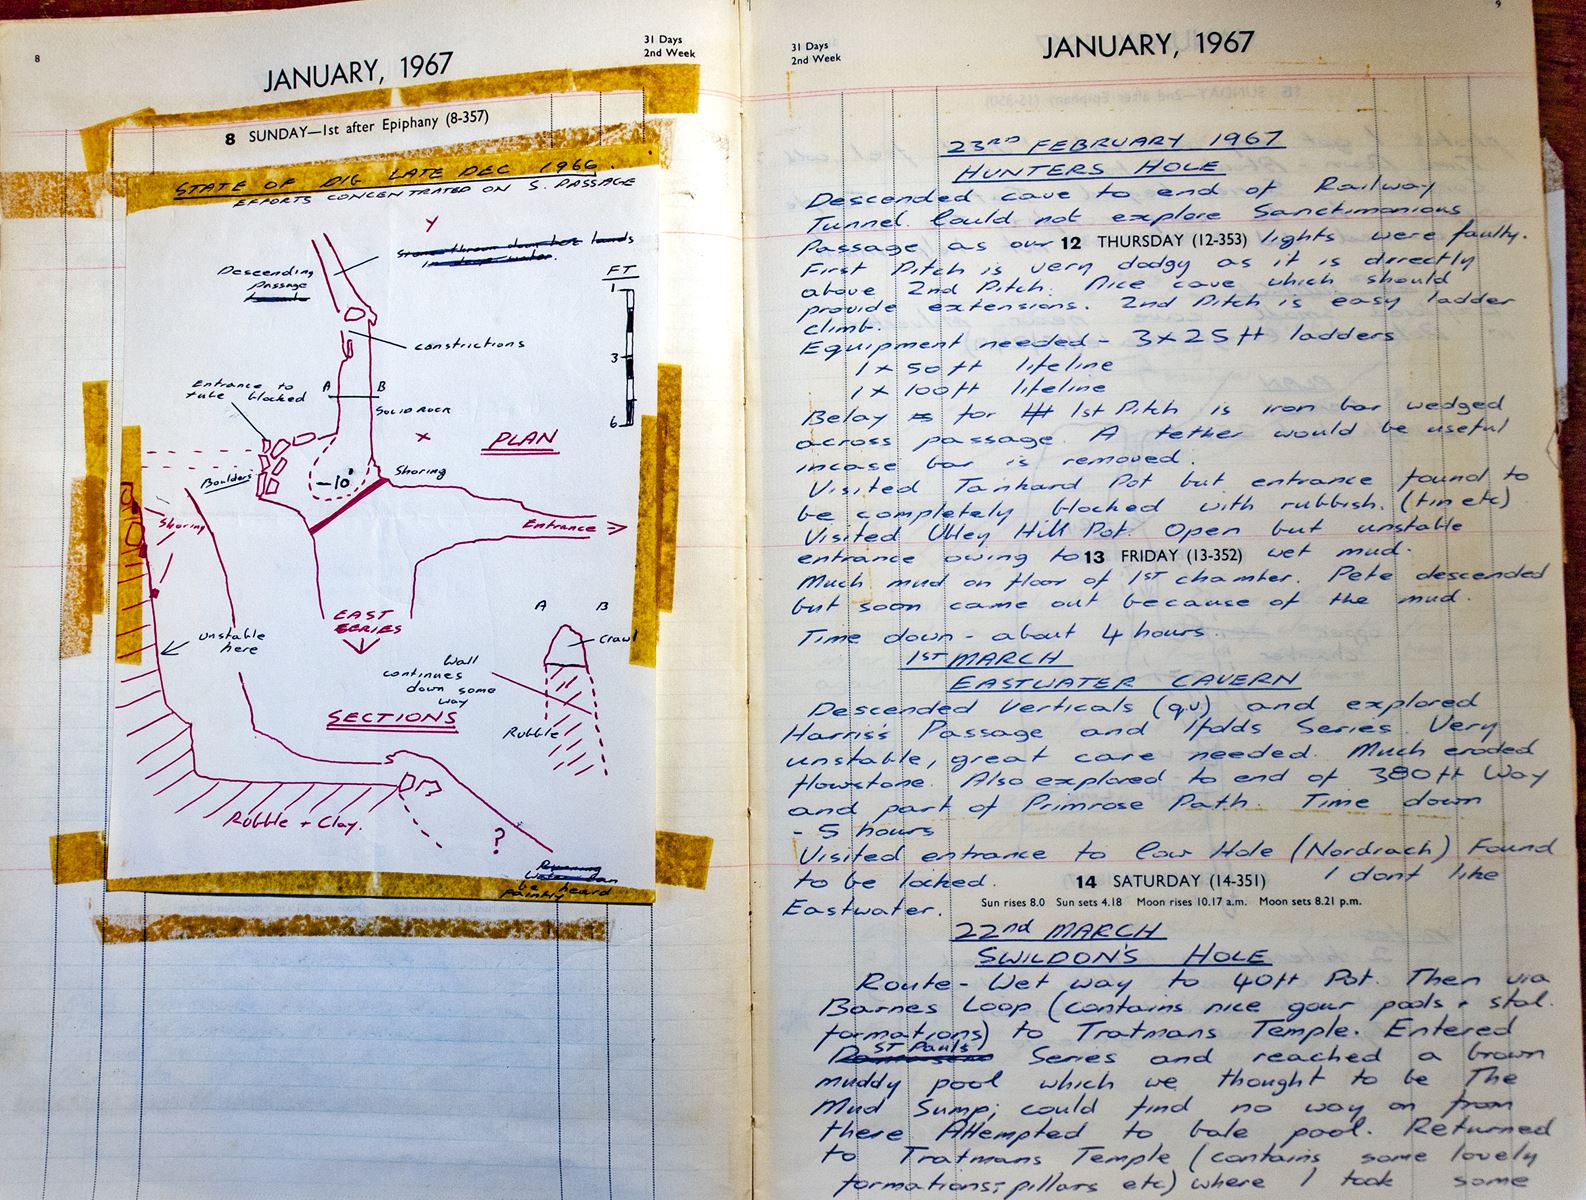 8
JANUARY, 1967
31 Days
2nd Week
8 SUNDAY—1st after Epiphany (8-357)
STATE OF DIG LATE DEC 1966.
EFFORTS CONCENTRATED ON S. PASSAGE
Y
Descending
Passage
FT
1
3
6
constrictions
Entrance to
tube blocked
A B
SOLID ROCK
X
PLAN
Boulders
-10'
Shoring
Shoring
Entrance
EAST
SERIES
A B
crawl
unstable
here
Wall
continues
down some
way
SECTIONS
Rubble
Rubble + Clay.
?
be heard
faintly
9
31 Days
2nd Week
JANUARY, 1967
23RD FEBRUARY 1967
HUNTERS HOLE
Descended cave to end of Railway
Tunnel. Could not explore Sanctimonious
Passage as our 12 THURSDAY (12-353) lights were faulty.
First Pitch is very dodgy as it is directly
above 2nd Pitch. Nice cave which should
provide extensions. 2nd Pitch is easy ladder
climb.
Equipment needed - 3x25ft ladders
1 x 50ft lifeline
1 x 100ft lifeline
Belay for 1st Pitch is iron bar wedged
across passage. A tether would be useful
incase bar is removed.
Visited Tankard Pot but entrance found to
be completely blocked with rubbish. (tin etc)
Visited Ubley Hill Pot. Open but unstable
entrance owing to 13 FRIDAY (13-352) wet mud.
Much mud on floor of 1st chamber. Pete descended
but soon came out because of the mud.
Time down - about 4 hours.
1ST MARCH
EASTWATER CAVERN
Descended Verticals (q.v) and explored
Harris's Passage and Ifolds Series. Very
unstable, great care needed. Much eroded
flowstone. Also explored to end of 380ft Way
and part of Primrose Path. Time down
- 5 hours
Visited entrance to Cow Hole (Nordrach) Found
to be locked. 14 SATURDAY (14-351) I dont like
Sun rises 8.0 Sun sets 4.18 Moon rises 10.17 a.m. Moon sets 8.21 p.m.
Eastwater.
22nd MARCH
SWILDON'S HOLE
Route - Wet way to 40ft Pot. Then via
Barnes Loop (contains nice gour pools + stal.
formations) to Tratmans Temple. Entered
ST Pauls Series and reached a brown
muddy pool which we thought to be The
Mud Sump; could find no way on from
there Attempted to bale pool. Returned
to Tratmans Temple (contains some lovely
formations; pillars etc) where I took some